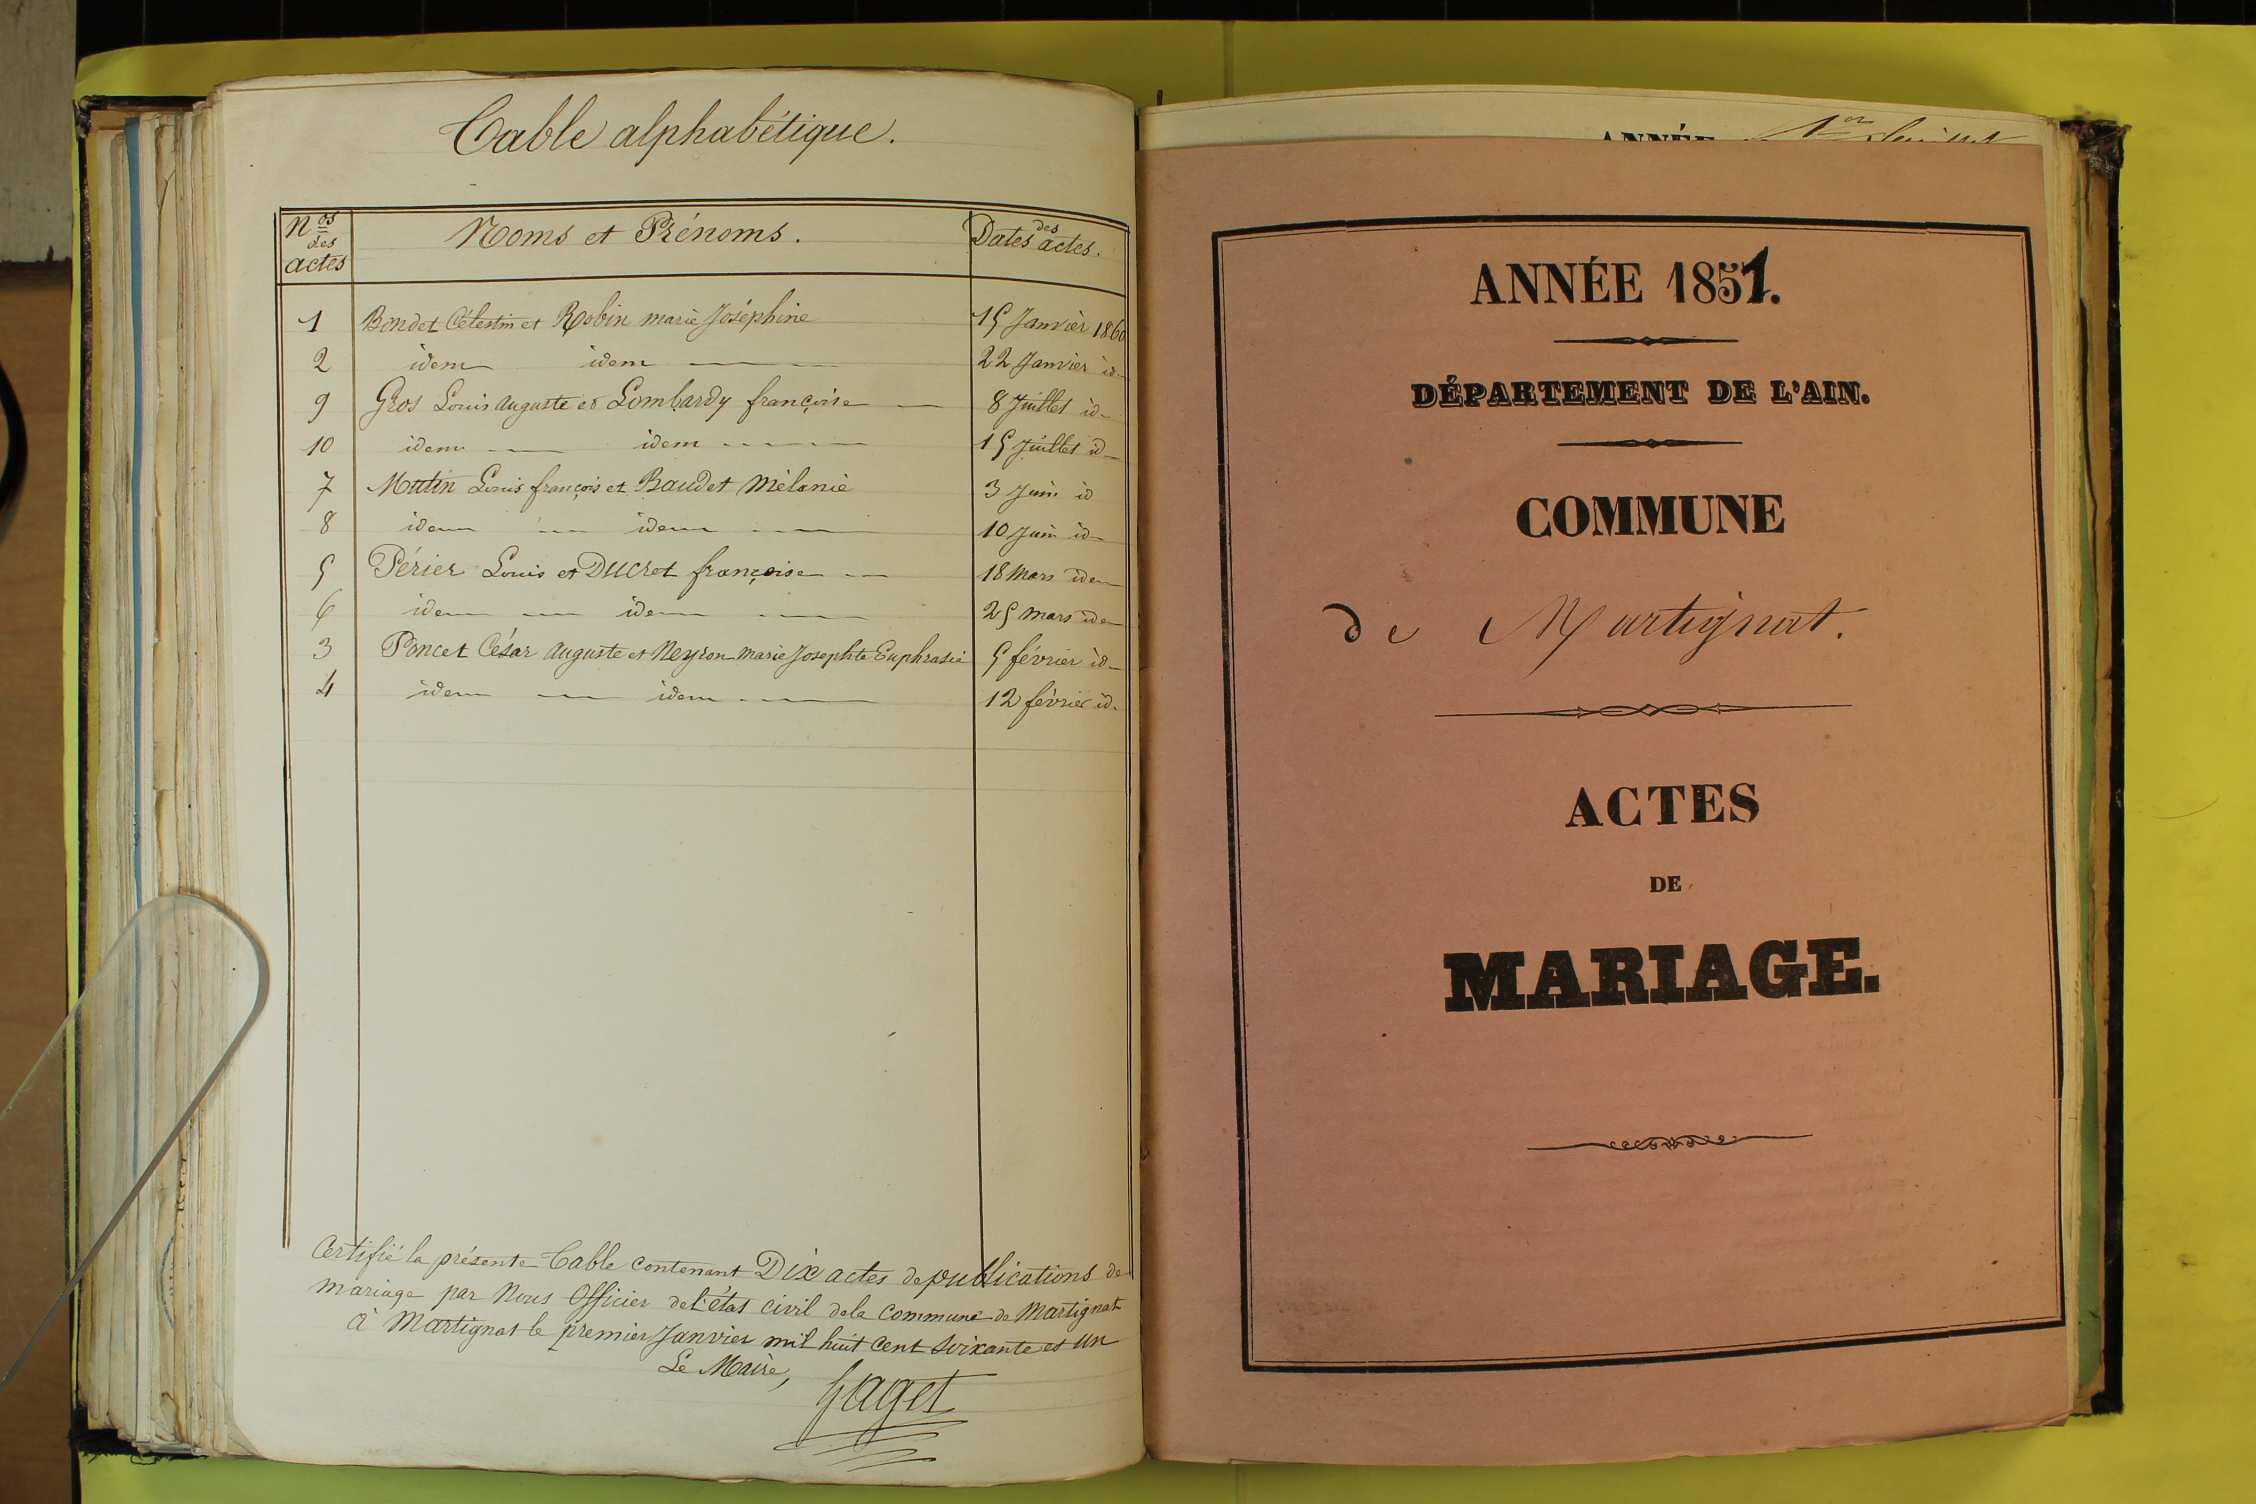 Table alphabétique.
Nos des actes Noms et Prénoms. Dates des actes.
1 Bondet Célestin et Robin marie Joséphine 15 Janvier 1860
2 idem idem 22 Janvier id
9 Gros Louis Auguste et Lombardy françoise 8 Juillet id
10 idem idem 15 Juillet id
7 Mutin Louis françois et Baudet Mélanie 3 Juin id
8 idem idem 10 Juin id
5 Périer Louis et Ducret françoise 18 Mars idem
6 idem idem 25 mars idem
3 Poncet César Auguste et Neyron Marie Josephte Euphrasie 5 février id
4 idem idem 12 février id.
Certifié la présente Table contenant Dix actes de publications de
mariage par Nous Officier de l'état civil de la commune de Martignat
à Martignat le premier Janvier mil huit cent soixante et un
Le Maire,
Gaget
ANNÉE
ANNÉE 1851.
DÉPARTEMENT DE L'AIN.
COMMUNE
de Martignat.
ACTES
DE
MARIAGE.